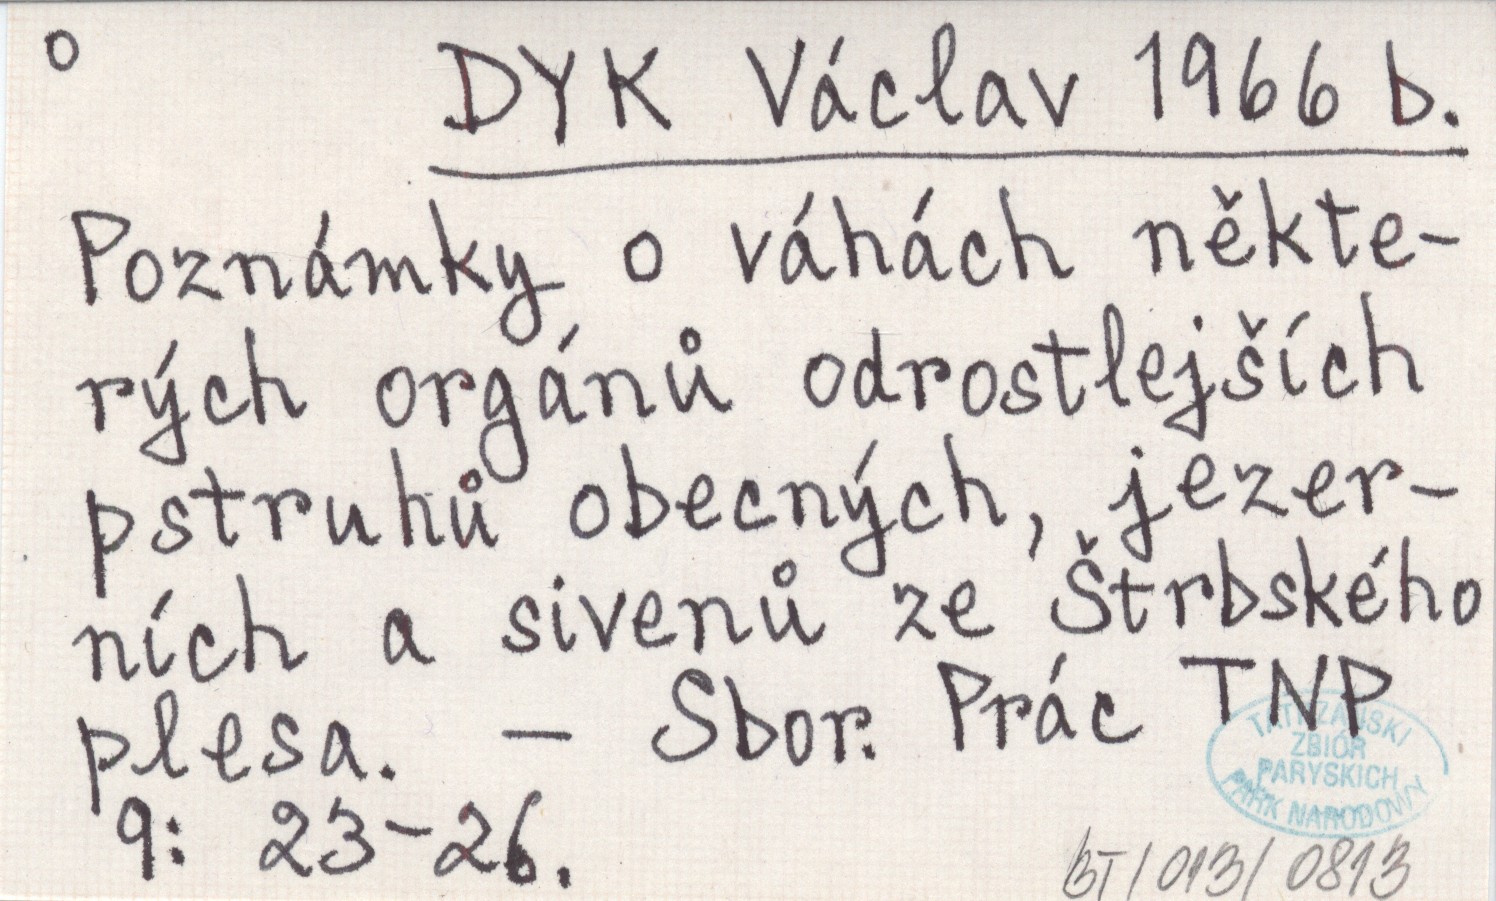 o
DYK Václav 1966 b.
Poznámky o váhách někte-
rých orgánů odrostlejších
pstruhů obecných, jezer-
ních a sivenů ze Štrbského
plesa. – Sbor. Prác TNP
9: 23-26.
TATRZAŃSKI
ZBIÓR
PARYSKICH
PARK NARODOWY
BT/013/0813